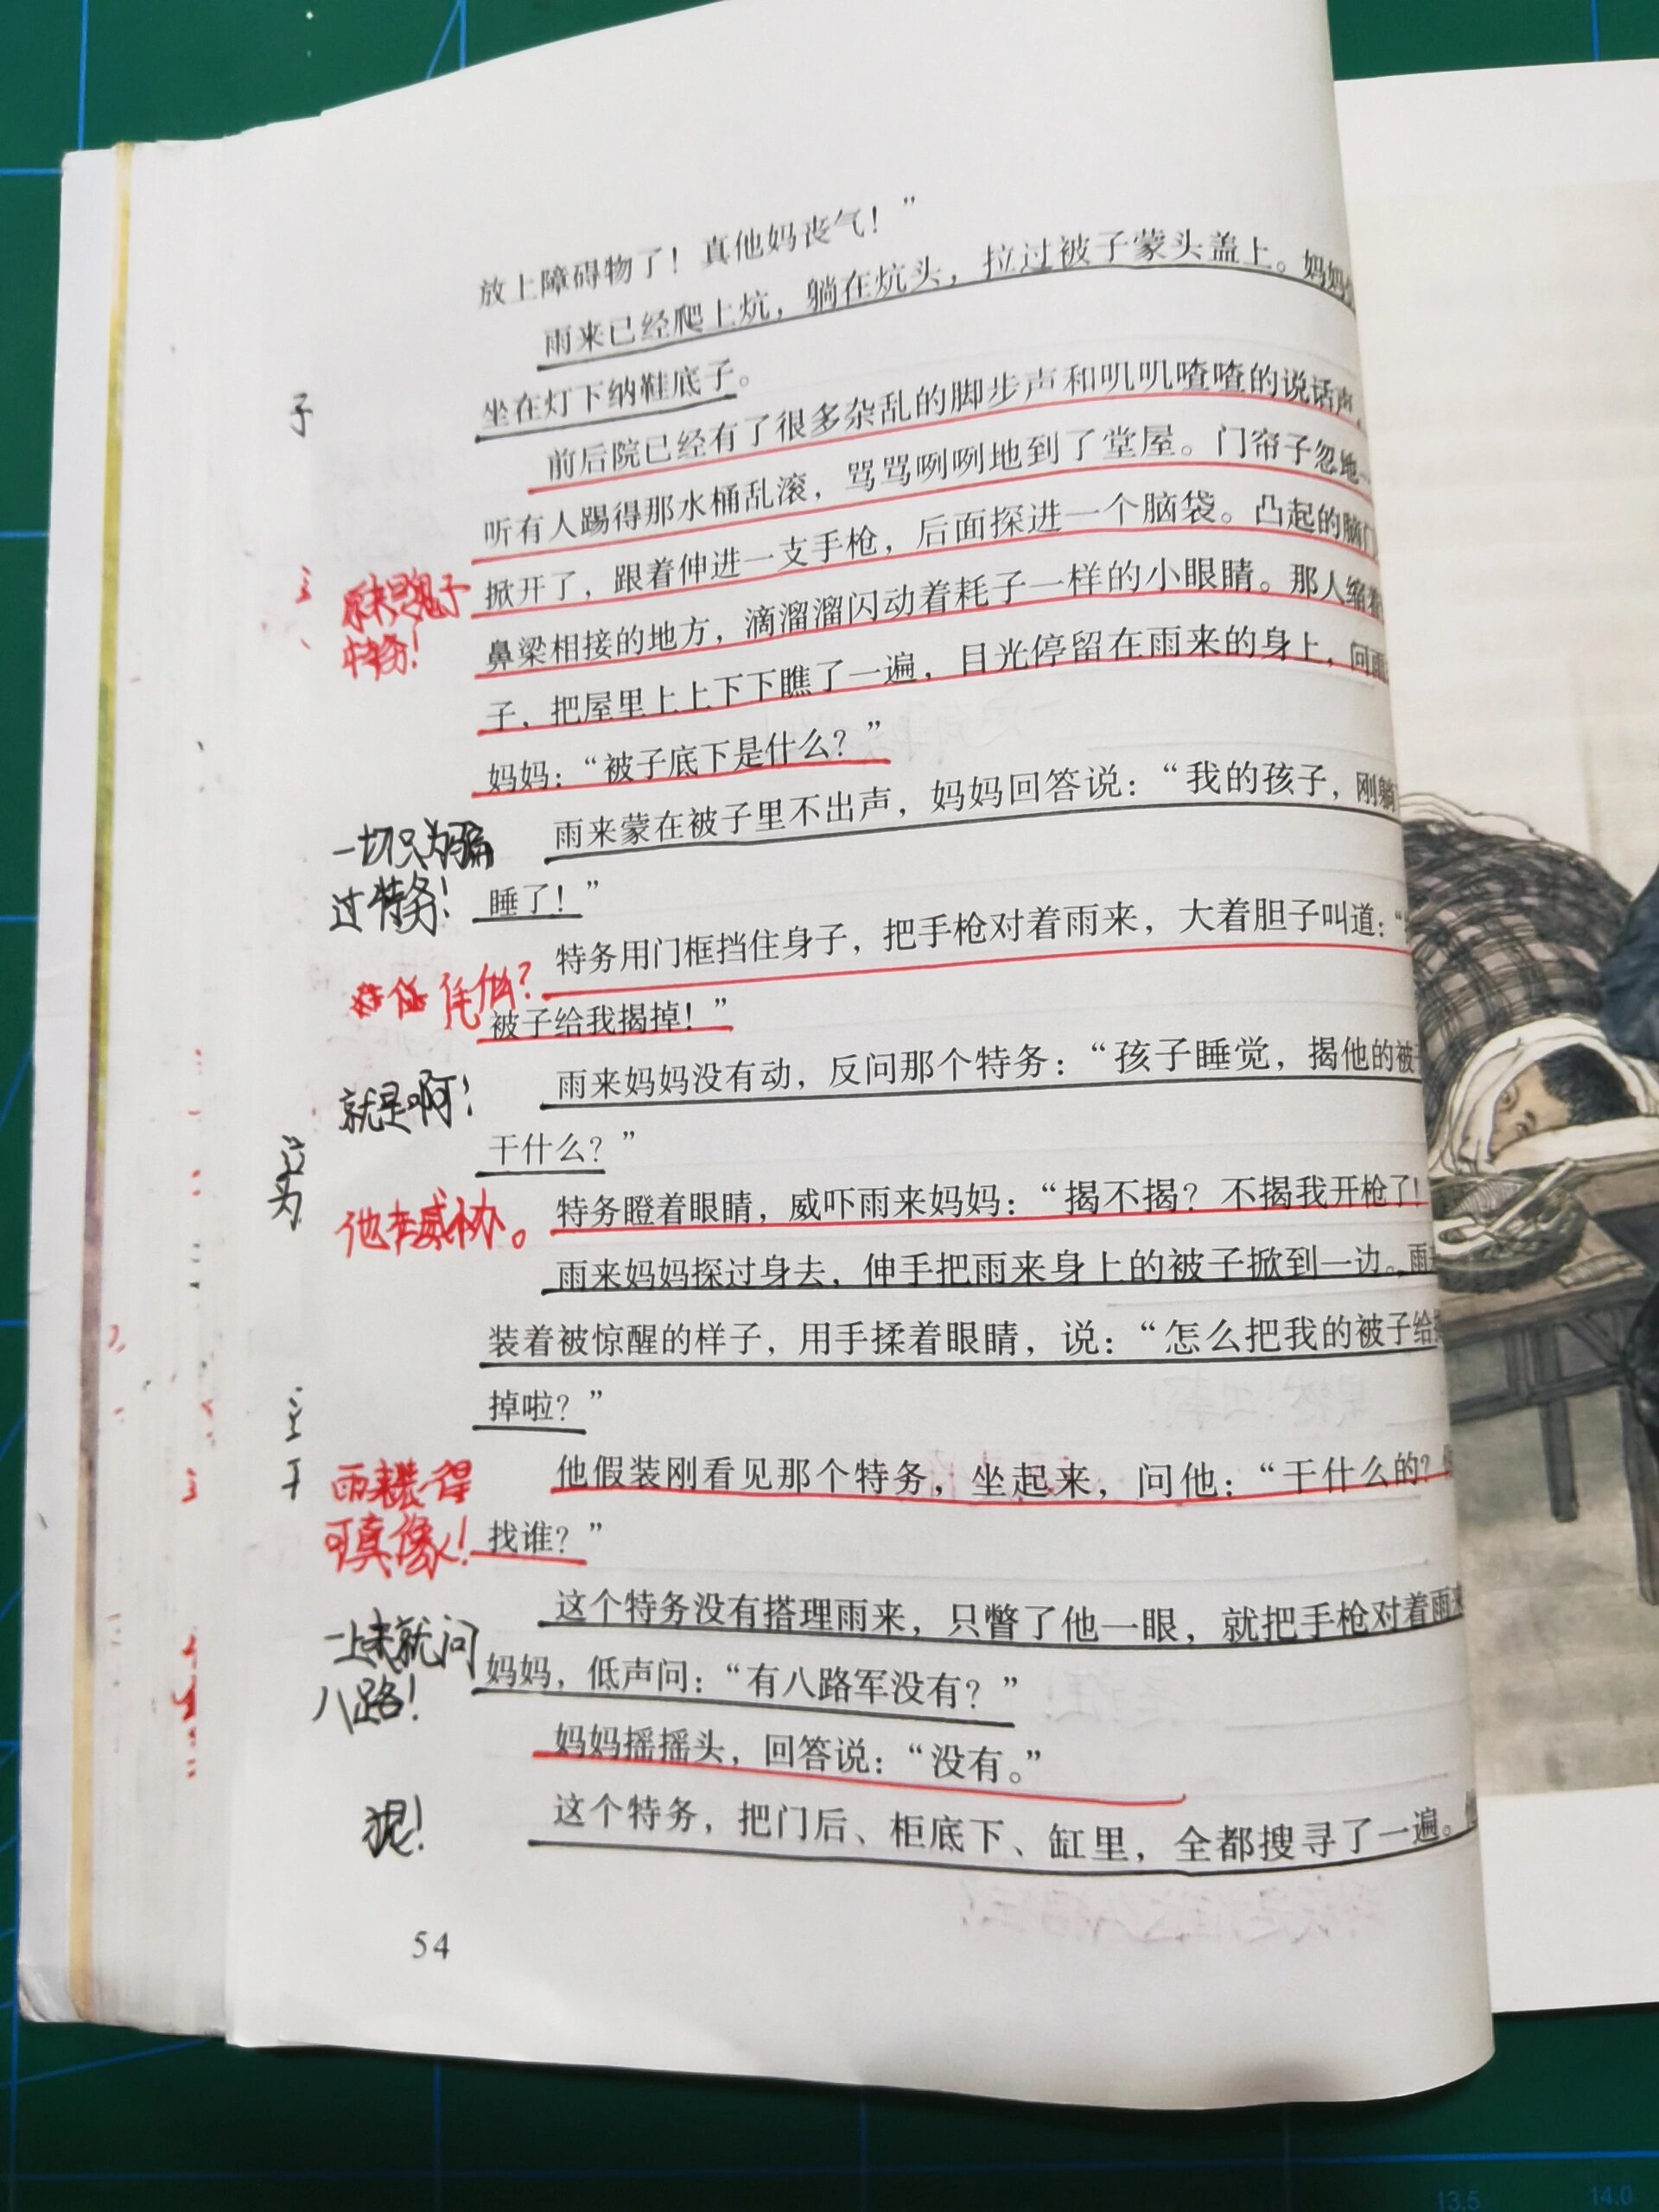 放上障碍物了！真他妈丧气！”
雨来已经爬上炕，躺在炕头，拉过被子蒙头盖上。妈妈
坐在灯下纳鞋底子。
前后院已经有了很多杂乱的脚步声和叽叽喳喳的说话声，
听有人踢得那水桶乱滚，骂骂咧咧地到了堂屋。门帘子忽地一
原来是鬼子
特务！
掀开了，跟着伸进一支手枪，后面探进一个脑袋。凸起的脑门
鼻梁相接的地方，滴溜溜闪动着耗子一样的小眼睛。那人缩着
子，把屋里上上下下瞧了一遍，目光停留在雨来的身上，问雨
妈妈：“被子底下是什么？”
一切只为骗
过特务！
雨来蒙在被子里不出声，妈妈回答说：“我的孩子，刚躺
睡了！”
凭什么？
特务用门框挡住身子，把手枪对着雨来，大着胆子叫道：“
被子给我揭掉！”
就是啊！
雨来妈妈没有动，反问那个特务：“孩子睡觉，揭他的被
干什么？”
他在威胁。
特务瞪着眼睛，威吓雨来妈妈：“揭不揭？不揭我开枪了！
雨来妈妈探过身去，伸手把雨来身上的被子掀到一边。雨
装着被惊醒的样子，用手揉着眼睛，说：“怎么把我的被子给
掉啦？”
雨来装得
可真像！
他假装刚看见那个特务，坐起来，问他：“干什么的？
找谁？”
一上来就问
八路！
这个特务没有搭理雨来，只瞥了他一眼，就把手枪对着雨来
妈妈，低声问：“有八路军没有？”
妈妈摇摇头，回答说：“没有。”
这个特务，把门后、柜底下、缸里，全都搜寻了一遍。
54
13.5
14.0